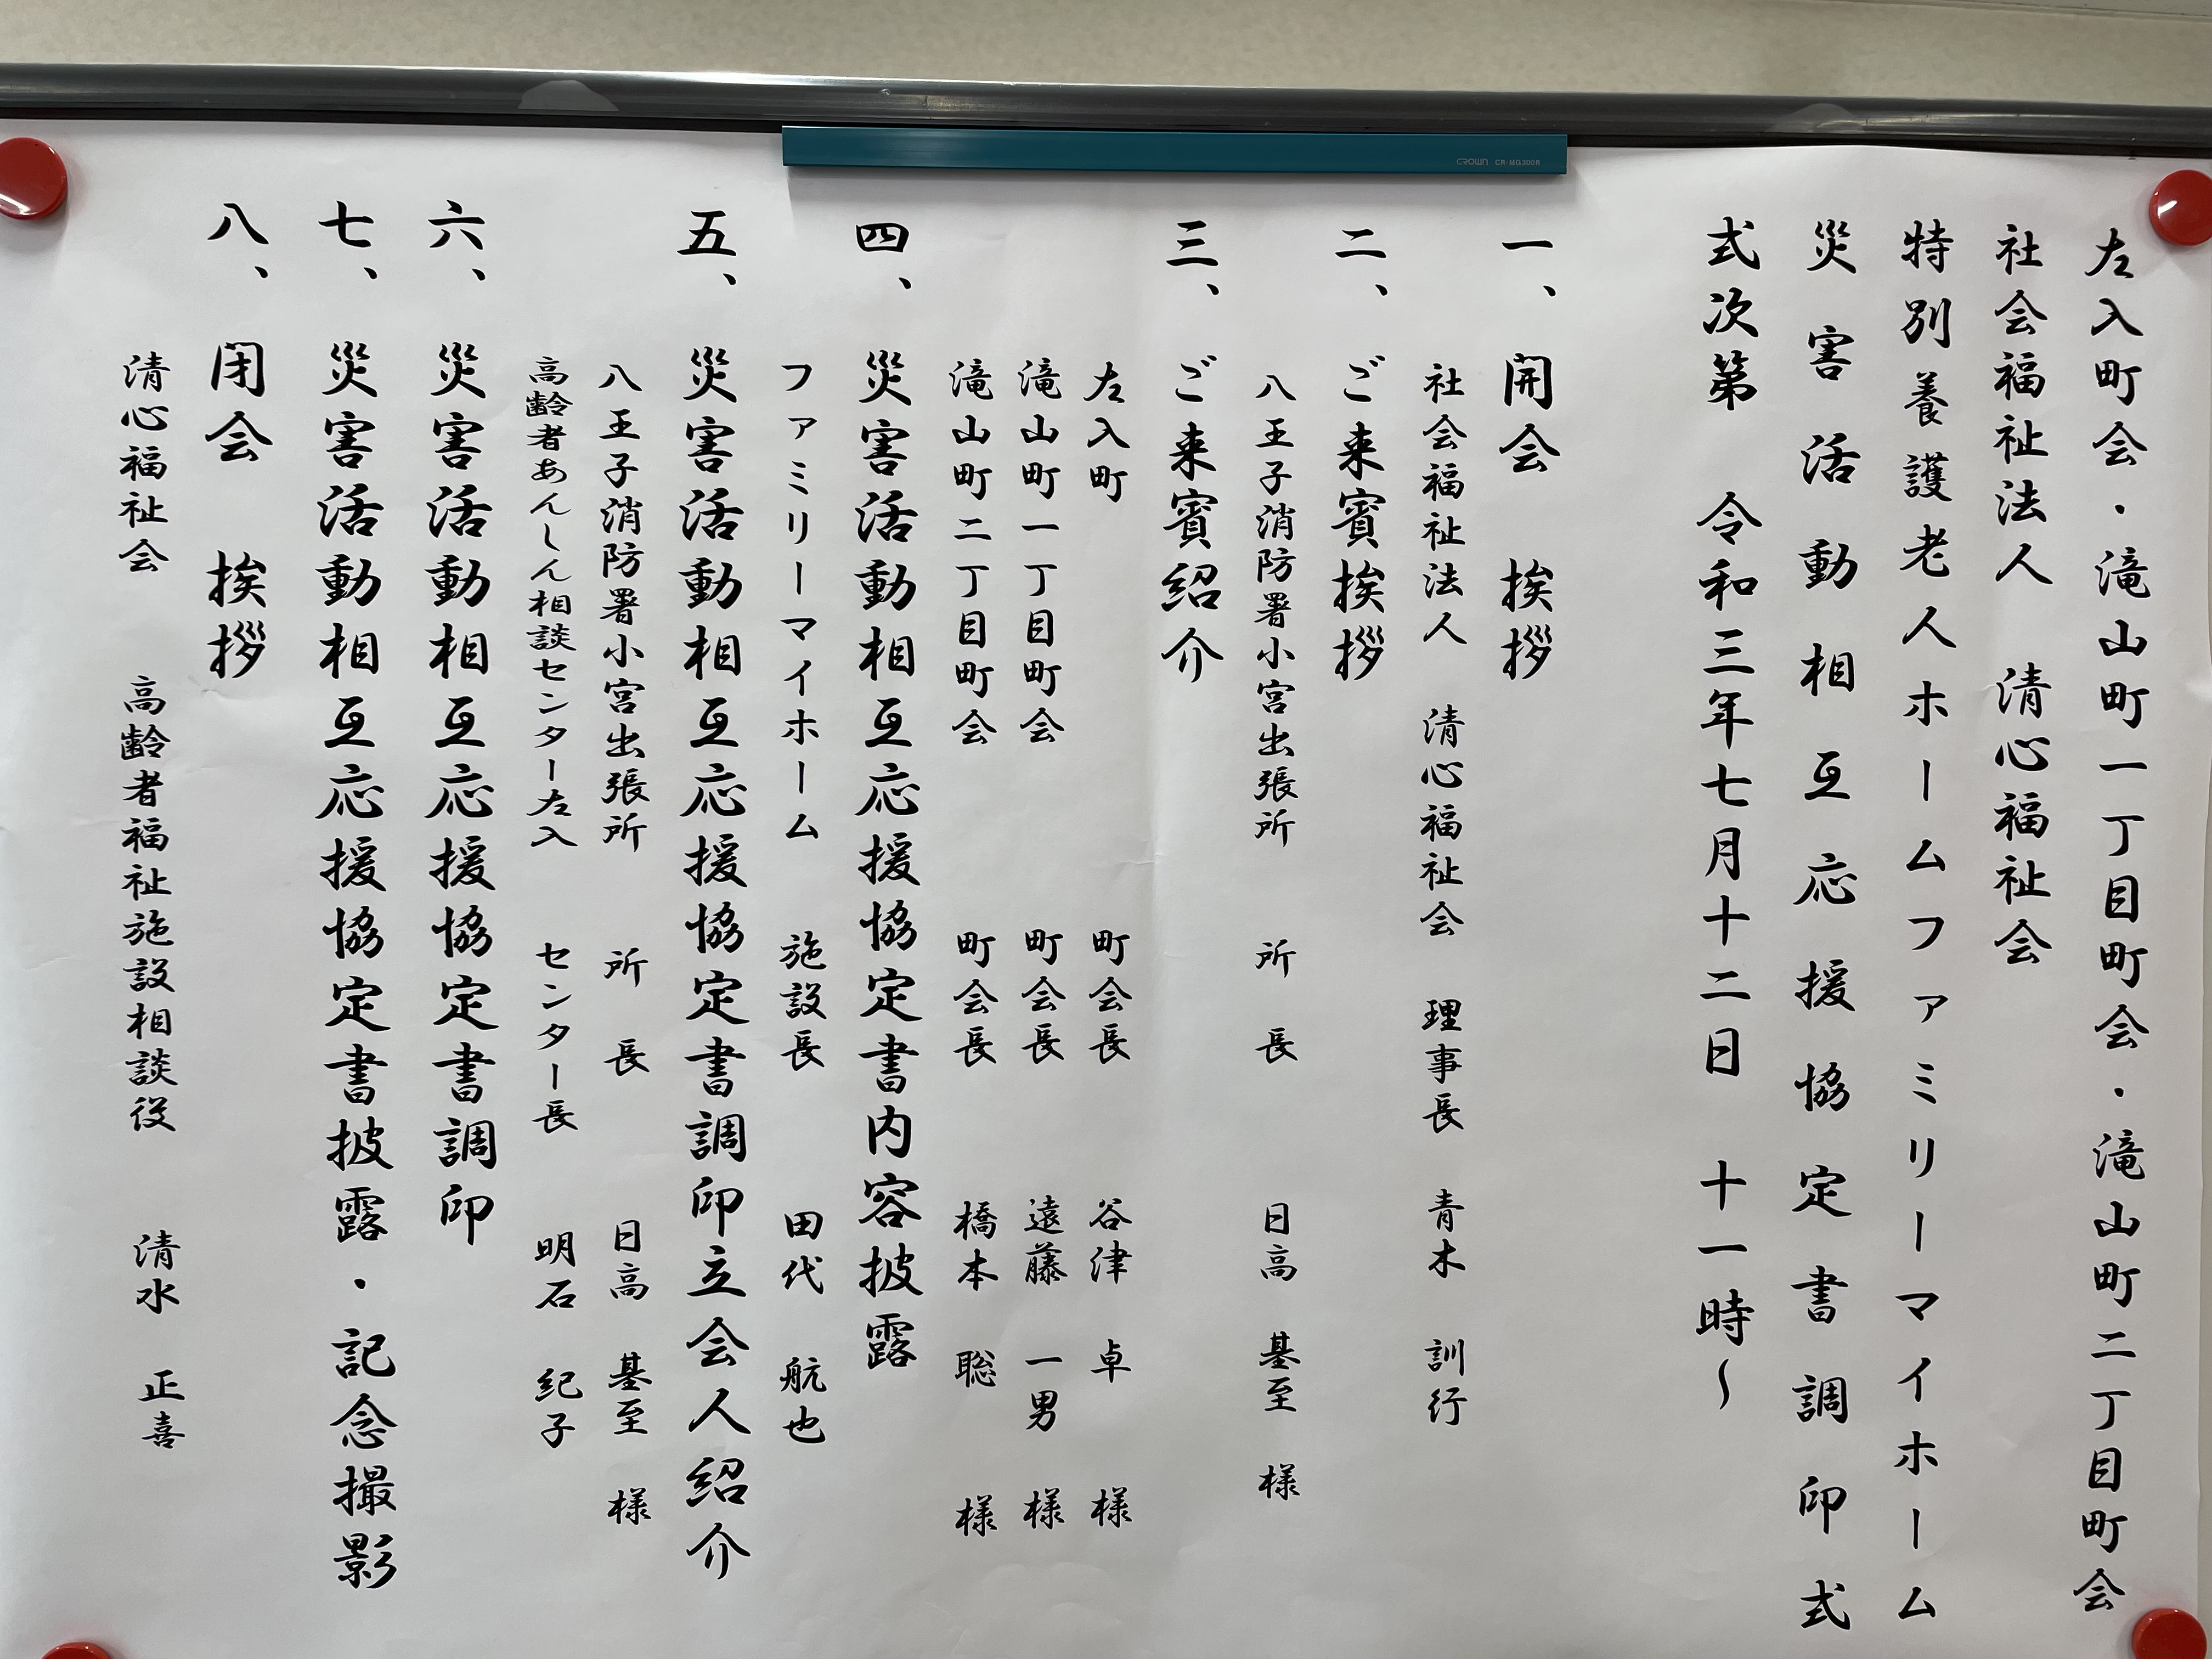 左入町会・滝山町一丁目町会・滝山町二丁目町会
社会福祉法人 清心福祉会
特別養護老人ホームファミリーマイホーム
災害活動相互応援協定書調印式
式次第 令和三年七月十二日 十一時〜
一、開会 挨拶
社会福祉法人 清心福祉会 理事長 青木 訓行
二、ご来賓挨拶
八王子消防署小宮出張所 所長 日高 基至 様
三、ご来賓紹介
左入町 町会長 谷津 卓 様
滝山町一丁目町会 町会長 遠藤 一男 様
滝山町二丁目町会 町会長 橋本 聡 様
四、災害活動相互応援協定書内容披露
ファミリーマイホーム 施設長 田代 航也
五、災害活動相互応援協定書調印立会人紹介
八王子消防署小宮出張所 所長 日高 基至 様
高齢者あんしん相談センター左入 センター長 明石 紀子
六、災害活動相互応援協定書調印
七、災害活動相互応援協定書披露・記念撮影
八、閉会 挨拶
清心福祉会 高齢者福祉施設相談役 清水 正喜
CROWN CR-MG300R